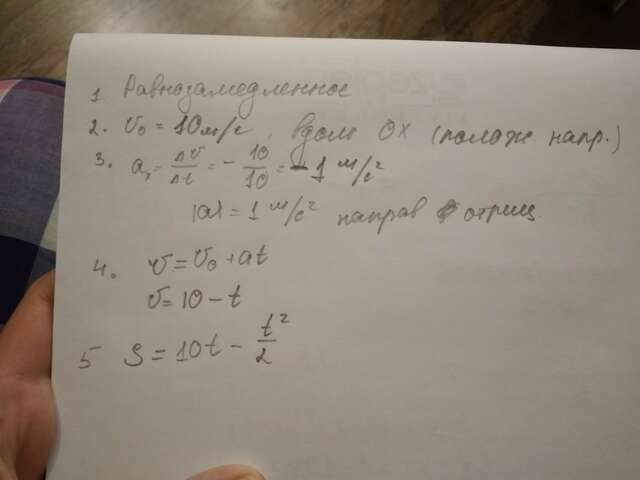 1 Равнозамедленное
2. υ₀ = 10 м/с, вдоль OX (полож. напр.)
3. aₓ = Δυ/Δt = - 10/10 = - 1 м/с²
|a| = 1 м/с² направ отриц.
4. υ = υ₀ + at
υ = 10 - t
5 S = 10t - t²/2